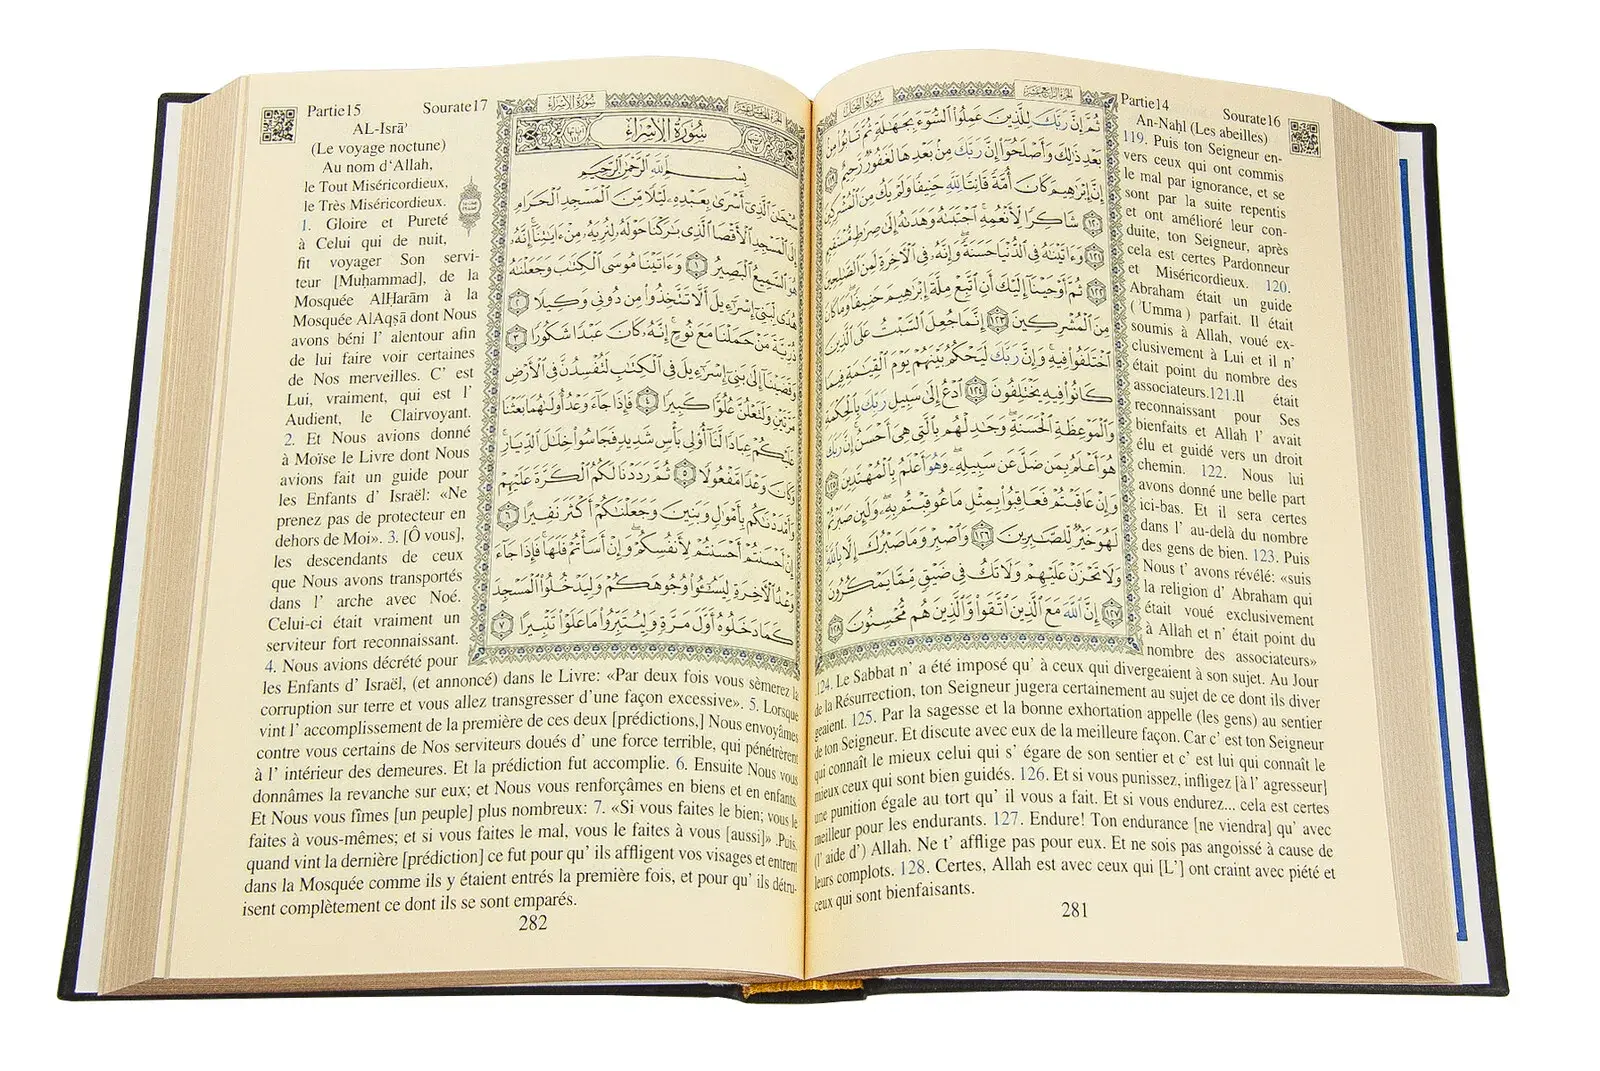 Partie14
Sourate16
سُورَةُ النَّحْلِ
الجُزْءُ الرَّابِعَ عَشَرَ
An-Naḥl (Les abeilles)
ثُمَّ إِنَّ رَبَّكَ لِلَّذِينَ عَمِلُوا۟ ٱلسُّوٓءَ بِجَهَٰلَةٍ ثُمَّ تَابُوا۟ مِنۢ
بَعْدِ ذَٰلِكَ وَأَصْلَحُوٓا۟ إِنَّ رَبَّكَ مِنۢ بَعْدِهَا لَغَفُورٌ رَّحِيمٌ ١١٩
إِنَّ إِبْرَٰهِيمَ كَانَ أُمَّةً قَانِتًا لِّلَّهِ حَنِيفًا وَلَمْ يَكُ مِنَ ٱلْمُشْرِكِينَ
١٢٠ شَاكِرًا لِّأَنْعُمِهِ ۚ ٱجْتَبَىٰهُ وَهَدَىٰهُ إِلَىٰ صِرَٰطٍ مُّسْتَقِيمٍ
١٢١ وَءَاتَيْنَٰهُ فِى ٱلدُّنْيَا حَسَنَةً ۖ وَإِنَّهُۥ فِى ٱلْأَخِرَةِ لَمِنَ ٱلصَّٰلِحِينَ
١٢٢ ثُمَّ أَوْحَيْنَآ إِلَيْكَ أَنِ ٱتَّبِعْ مِلَّةَ إِبْرَٰهِيمَ حَنِيفًا ۖ وَمَا كَانَ
مِنَ ٱلْمُشْرِكِينَ ١٢٣ إِنَّمَا جُعِلَ ٱلسَّبْتُ عَلَى ٱلَّذِينَ
ٱخْتَلَفُوا۟ فِيهِ ۚ وَإِنَّ رَبَّكَ لَيَحْكُمُ بَيْنَهُمْ يَوْمَ ٱلْقِيَٰمَةِ فِيمَا
كَانُوا۟ فِيهِ يَخْتَلِفُونَ ١٢٤ ٱدْعُ إِلَىٰ سَبِيلِ رَبِّكَ بِٱلْحِكْمَةِ
وَٱلْمَوْعِظَةِ ٱلْحَسَنَةِ ۖ وَجَٰدِلْهُم بِٱلَّتِى هِىَ أَحْسَنُ ۚ إِنَّ رَبَّكَ
هُوَ أَعْلَمُ بِمَن ضَلَّ عَن سَبِيلِهِۦ ۖ وَهُوَ أَعْلَمُ بِٱلْمُهْتَدِينَ ١٢٥
وَإِنْ عَاقَبْتُمْ فَعَاقِبُوا۟ بِمِثْلِ مَا عُوقِبْتُم بِهِۦ ۖ وَلَئِن صَبَرْتُمْ
لَهُوَ خَيْرٌ لِّلصَّٰبِرِينَ ١٢٦ وَٱصْبِرْ وَمَا صَبْرُكَ إِلَّا بِٱللَّهِ
وَلَا تَحْزَنْ عَلَيْهِمْ وَلَا تَكُ فِى ضَيْقٍ مِّمَّا يَمْكُرُونَ
١٢٧ إِنَّ ٱللَّهَ مَعَ ٱلَّذِينَ ٱتَّقَوا۟ وَّٱلَّذِينَ هُم مُّحْسِنُونَ ١٢٨
119. Puis ton Seigneur en-
vers ceux qui ont commis
le mal par ignorance, et se
sont par la suite repentis
et ont amélioré leur con-
duite, ton Seigneur, après
cela est certes Pardonneur
et Miséricordieux. 120.
Abraham était un guide
( 'Umma ) parfait. Il était
soumis à Allah, voué ex-
clusivement à Lui et il n'
était point du nombre des
associateurs.121.Il était
reconnaissant pour Ses
bienfaits et Allah l' avait
élu et guidé vers un droit
chemin. 122. Nous lui
avons donné une belle part
ici-bas. Et il sera certes
dans l' au-delà du nombre
des gens de bien. 123. Puis
Nous t' avons révélé: «suis
la religion d' Abraham qui
était voué exclusivement
à Allah et n' était point du
nombre des associateurs»
.124. Le Sabbat n' a été imposé qu' à ceux qui divergeaient à son sujet. Au Jour
de la Résurrection, ton Seigneur jugera certainement au sujet de ce dont ils diver
geaient. 125. Par la sagesse et la bonne exhortation appelle (les gens) au sentier
de ton Seigneur. Et discute avec eux de la meilleure façon. Car c' est ton Seigneur
qui connaît le mieux celui qui s' égare de son sentier et c' est lui qui connaît le
mieux ceux qui sont bien guidés. 126. Et si vous punissez, infligez [à l' agresseur]
une punition égale au tort qu' il vous a fait. Et si vous endurez... cela est certes
meilleur pour les endurants. 127. Endure! Ton endurance [ne viendra] qu' avec
(l' aide d') Allah. Ne t' afflige pas pour eux. Et ne sois pas angoissé à cause de
leurs complots. 128. Certes, Allah est avec ceux qui [L'] ont craint avec piété et
ceux qui sont bienfaisants.
281
Partie15
Sourate17
سُورَةُ الإِسْرَاءِ
AL-Isrā’
(Le voyage noctune)
سُورَةُ الإِسْرَاءِ
بِسْمِ ٱللَّهِ ٱلرَّحْمَٰنِ ٱلرَّحِيمِ
سُبْحَٰنَ ٱلَّذِىٓ أَسْرَىٰ بِعَبْدِهِۦ لَيْلًا مِّنَ ٱلْمَسْجِدِ ٱلْحَرَامِ
إِلَى ٱلْمَسْجِدِ ٱلْأَقْصَا ٱلَّذِى بَٰرَكْنَا حَوْلَهُۥ لِنُرِيَهُۥ مِنْ ءَايَٰتِنَآ ۚ إِنَّهُۥ
هُوَ ٱلسَّمِيعُ ٱلْبَصِيرُ ١ وَءَاتَيْنَا مُوسَى ٱلْكِتَٰبَ وَجَعَلْنَٰهُ
هُدًى لِّبَنِىٓ إِسْرَٰٓءِيلَ أَلَّا تَتَّخِذُوا۟ مِن دُونِى وَكِيلًا ٢
ذُرِّيَّةَ مَنْ حَمَلْنَا مَعَ نُوحٍ ۚ إِنَّهُۥ كَانَ عَبْدًا شَكُورًا ٣
وَقَضَيْنَآ إِلَىٰ بَنِىٓ إِسْرَٰٓءِيلَ فِى ٱلْكِتَٰبِ لَتُفْسِدُنَّ فِى ٱلْأَرْضِ
مَرَّتَيْنِ وَلَتَعْلُنَّ عُلُوًّا كَبِيرًا ٤ فَإِذَا جَآءَ وَعْدُ أُولَىٰهُمَا بَعَثْنَا
عَلَيْكُمْ عِبَادًا لَّنَآ أُو۟لِى بَأْسٍ شَدِيدٍ فَجَاسُوا۟ خِلَٰلَ ٱلدِّيَارِ ۚ
وَكَانَ وَعْدًا مَّفْعُولًا ٥ ثُمَّ رَدَدْنَا لَكُمُ ٱلْكَرَّةَ عَلَيْهِمْ
وَأَمْدَدْنَٰكُم بِأَمْوَٰلٍ وَبَنِينَ وَجَعَلْنَٰكُمْ أَكْثَرَ نَفِيرًا ٦
إِنْ أَحْسَنتُمْ أَحْسَنتُمْ لِأَنفُسِكُمْ ۖ وَإِنْ أَسَأْتُمْ فَلَهَا ۚ فَإِذَا جَآءَ
وَعْدُ ٱلْأَخِرَةِ لِيَسُۥٓـُٔوا۟ وُجُوهَكُمْ وَلِيَدْخُلُوا۟ ٱلْمَسْجِدَ
كَمَا دَخَلُوهُ أَوَّلَ مَرَّةٍ وَلِيُتَبِّرُوا۟ مَا عَلَوْا۟ تَتْبِيرًا ٧
Au nom d‘Allah,
le Tout Miséricordieux,
le Très Miséricordieux.
1. Gloire et Pureté
à Celui qui de nuit,
fit voyager Son servi-
teur [Muḥammad], de la
Mosquée AlḤarām à la
Mosquée AlAqṣā dont Nous
avons béni l' alentour afin
de lui faire voir certaines
de Nos merveilles. C' est
Lui, vraiment, qui est l'
Audient, le Clairvoyant.
2. Et Nous avions donné
à Moïse le Livre dont Nous
avions fait un guide pour
les Enfants d' Israël: «Ne
prenez pas de protecteur en
dehors de Moi». 3. [Ô vous],
les descendants de ceux
que Nous avons transportés
dans l' arche avec Noé.
Celui-ci était vraiment un
serviteur fort reconnaissant.
4. Nous avions décrété pour
les Enfants d' Israël, (et annoncé) dans le Livre: «Par deux fois vous sèmerez la
corruption sur terre et vous allez transgresser d’une façon excessive». 5. Lorsque
vint l' accomplissement de la première de ces deux [prédictions,] Nous envoyâmes
contre vous certains de Nos serviteurs doués d' une force terrible, qui pénétrèrent
à l' intérieur des demeures. Et la prédiction fut accomplie. 6. Ensuite Nous vous
donnâmes la revanche sur eux; et Nous vous renforçâmes en biens et en enfants.
Et Nous vous fîmes [un peuple] plus nombreux: 7. «Si vous faites le bien; vous le
faites à vous-mêmes; et si vous faites le mal, vous le faites à vous [aussi]» .Puis,
quand vint la dernière [prédiction] ce fut pour qu' ils affligent vos visages et entrent
dans la Mosquée comme ils y étaient entrés la première fois, et pour qu' ils détru-
isent complètement ce dont ils se sont emparés.
282